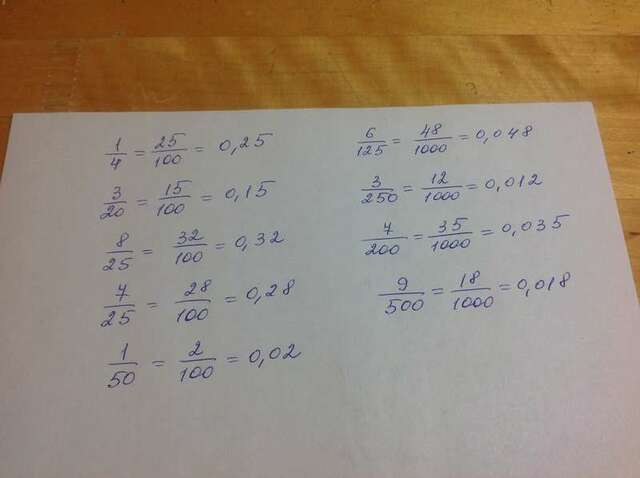 1/4 = 25/100 = 0,25
3/20 = 15/100 = 0,15
8/25 = 32/100 = 0,32
7/25 = 28/100 = 0,28
1/50 = 2/100 = 0,02
6/125 = 48/1000 = 0,048
3/250 = 12/1000 = 0,012
7/200 = 35/1000 = 0,035
9/500 = 18/1000 = 0,018